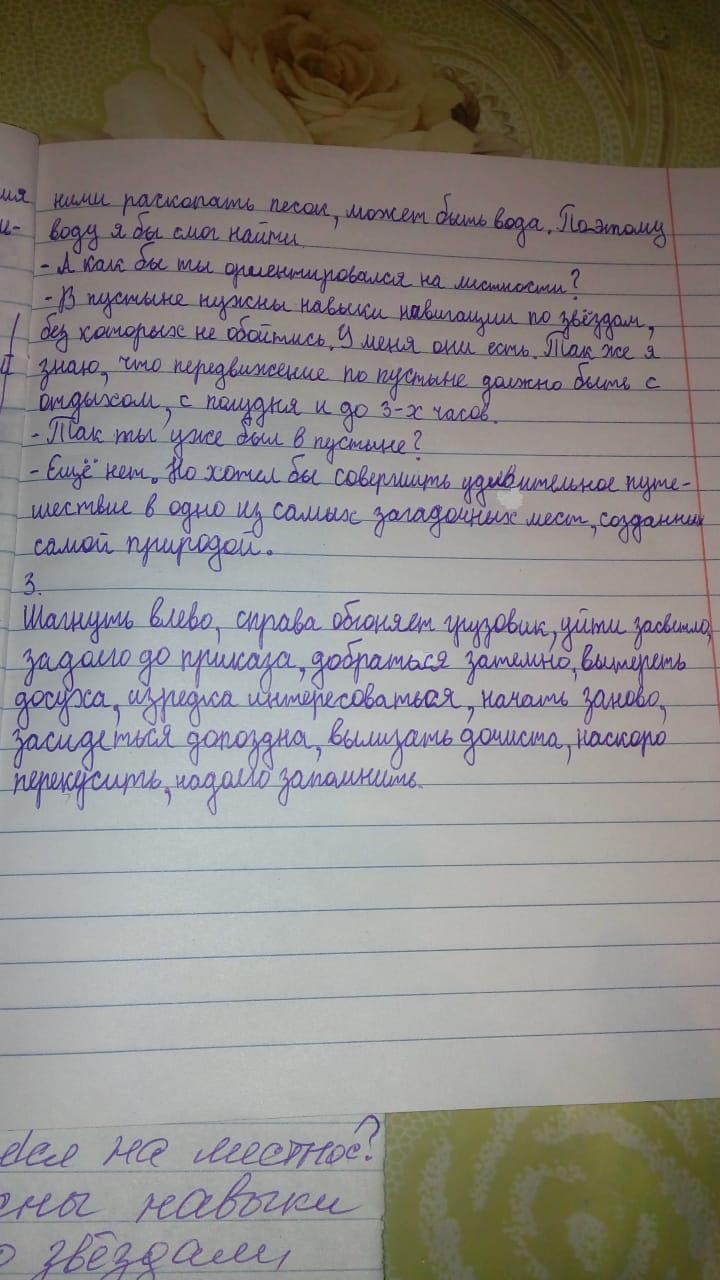 ния ними раскопать песок, может быть вода. Поэтому
и- воду я бы смог найти.
- А как бы ты ориентировался на местности?
- В пустыне нужны навыки навигации по звёздам,
без которых не обойтись. У меня они есть. Так же я
знаю, что передвижение по пустыне должно быть с
отдыхом, с полудня и до 3-х часов.
- Так ты уже был в пустыне?
- Ещё нет. Но хотел бы совершить удивительное путе-
шествие в одно из самых загадочных мест, созданных
самой природой.
3.
Шагнуть влево, справа обгоняет грузовик, уйти засветло,
задолго до приказа, добраться затемно, вытереть
досуха, изредка интересоваться, начать заново,
засидеться допоздна, вылизать дочиста, наскоро
перекусить, надолго запомнить.
на местнос?
навыки
звёздами